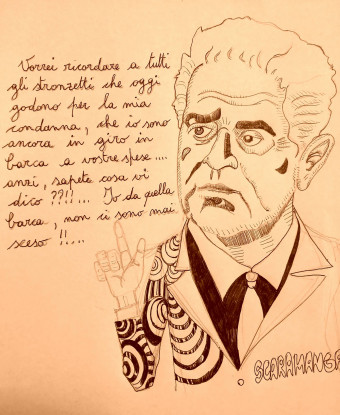 Vorrei ricordare a tutti
gli stronzetti che oggi
godono per la mia
condanna, che io sono
ancora in giro in
barca a vostre spese....
anzi, sapete cosa vi
dico ??!!... Io da quella
barca, non ci sono mai
sceso !!.....
SCARAMANGA